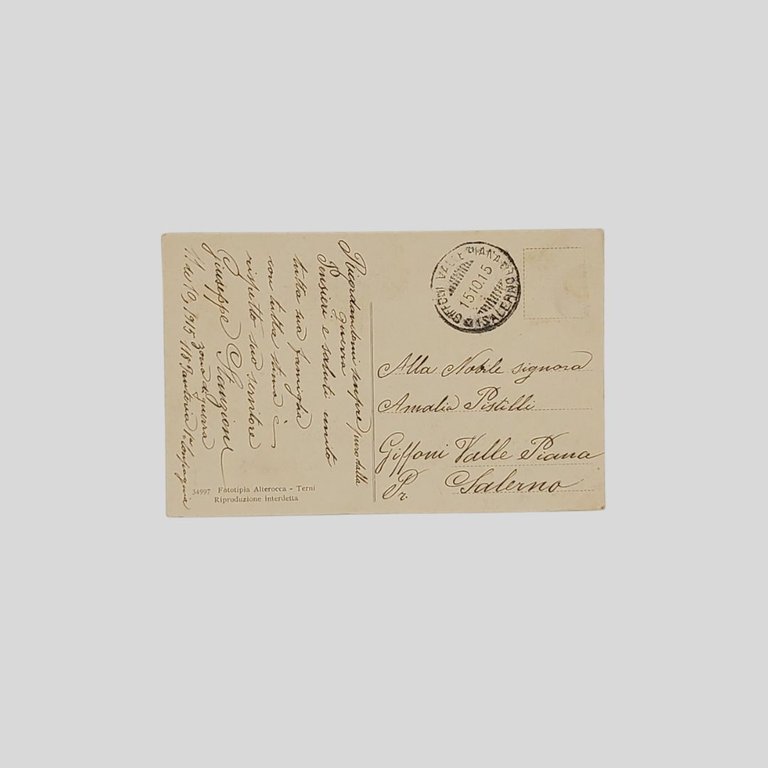 Ricordandomi sempre pure dalla
guerra
Pensieri e saluti unito
tutta sua famiglia
con tutta stima e
rispetto suo servitore
Giuseppe Mangione
Zona di guerra
11 10, 1915, 118 Fanteria 1ª Compagnia
34997 Fototipia Alterocca - Terni
Riproduzione interdetta
GIFFONI VALLE PIANA
(SALERNO)
15.10.15
Alla Nobile signora
Amalia Pistilli
Giffoni Valle Piana
Pr. Salerno